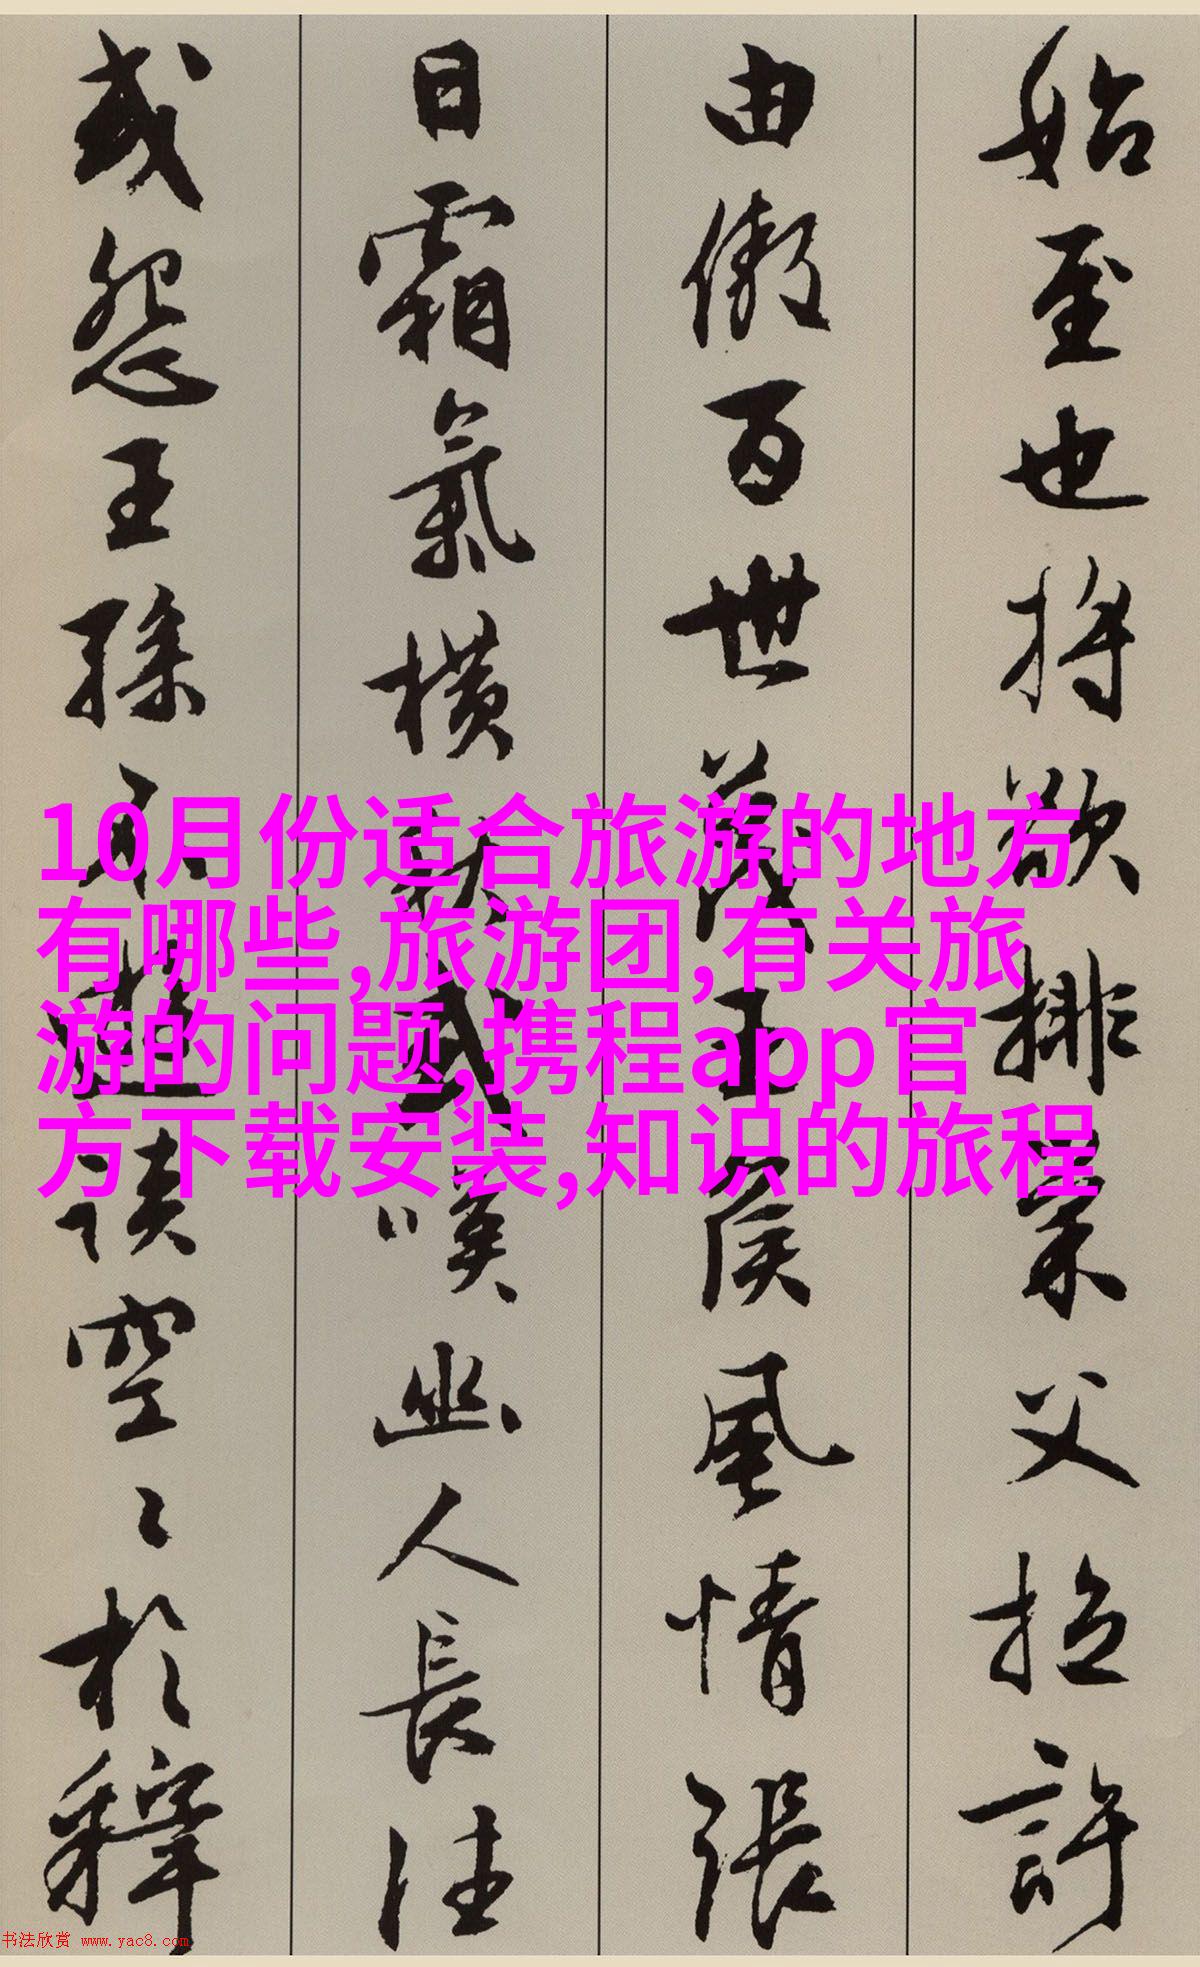 始至也將欲排巢父拉許
由傲百世蔑王侯風情張
日霜氣橫秋或嘆幽人長往
或怨王孫不遊談空〻於釋
10月份适合旅游的地方
有哪些,旅游团,有关旅
游的问题,携程app官
方下载安装,知识的旅程
书法欣赏 www.yac8.com